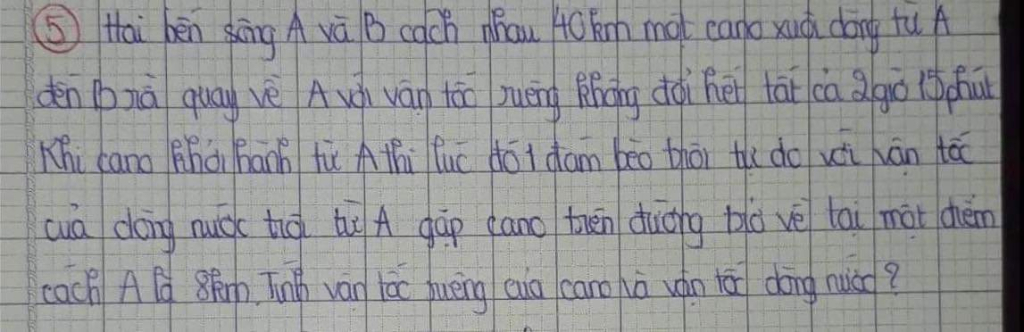 ⑤ Hai bến sông A và B cách nhau 40km một cano xuôi dòng từ A
đến B và quay về A với vận tốc riêng không đổi hết tất cả 2 giờ 15 phút
Khi cano khởi hành từ A thì lúc đó 1 đám bèo trôi tự do với vận tốc
của dòng nước trôi từ A gặp cano trên đường trở về tại một điểm
cách A là 8km. Tính vận tốc riêng của cano và vận tốc dòng nước?